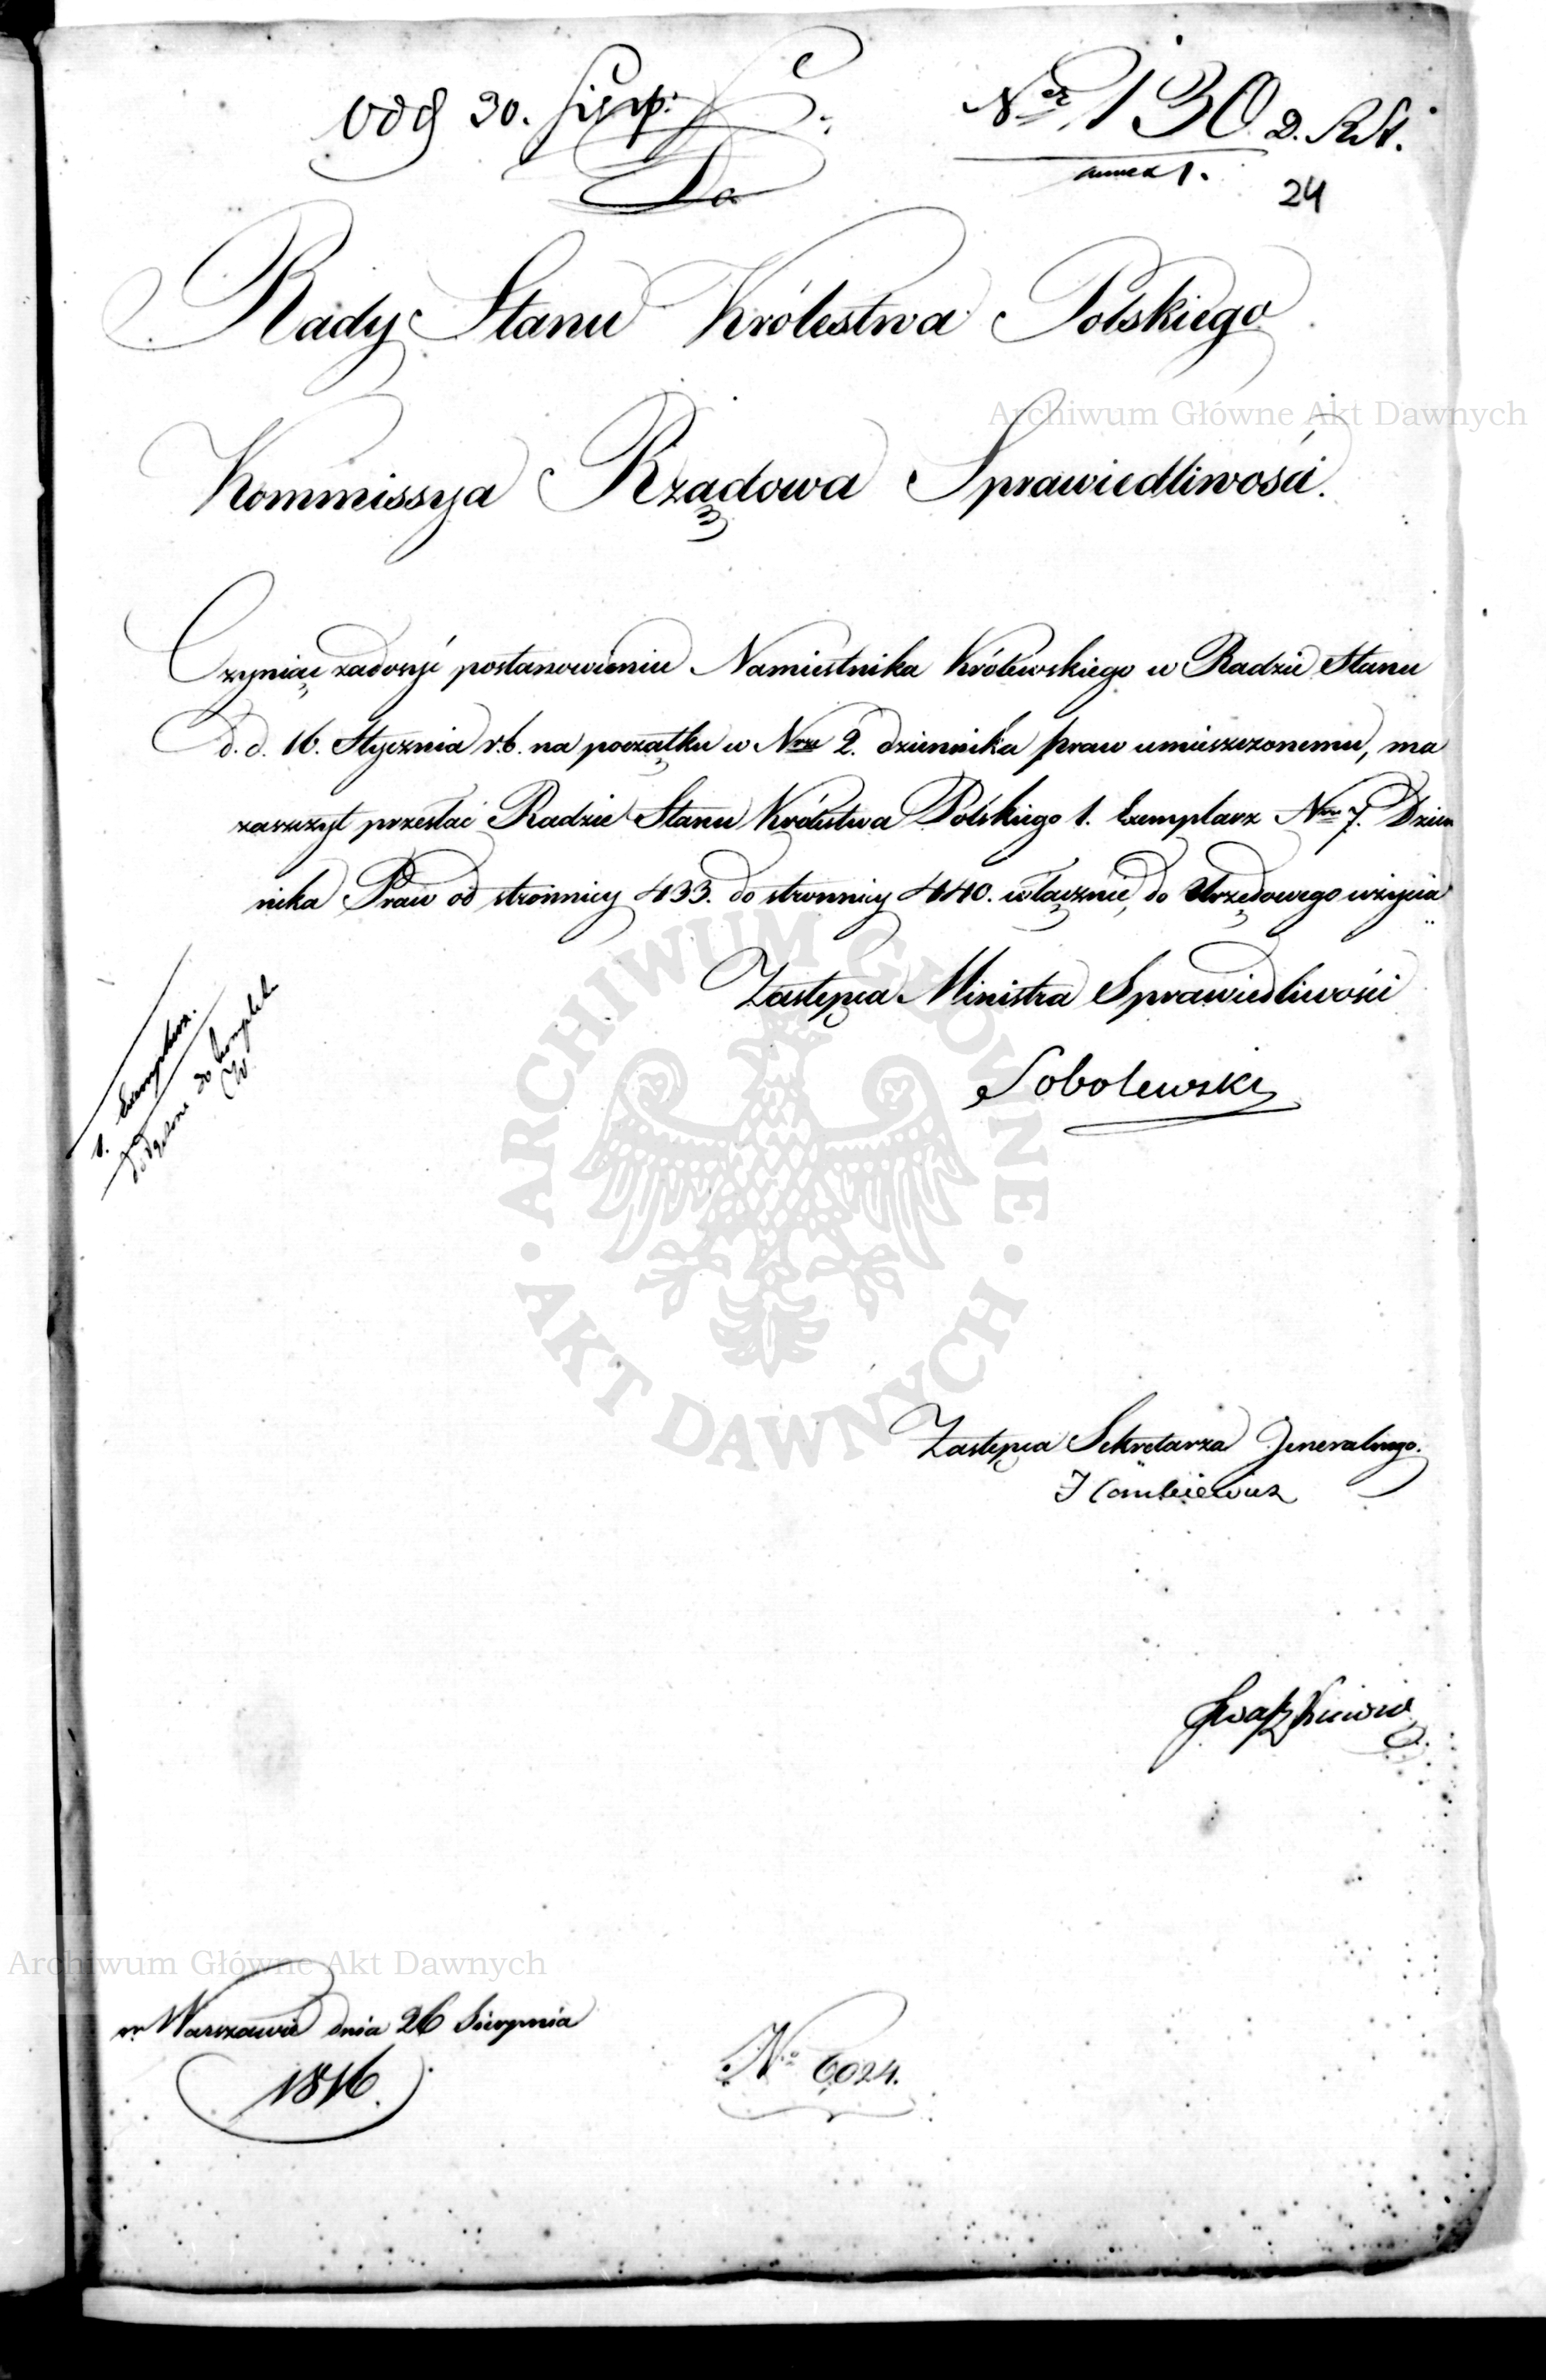 odd 30. Sierp:
Nr 130 D. R.St.
annex 1.
24
Do
Rady Stanu Królestwa Polskiego
Archiwum Główne Akt Dawnych
Kommissya Rządowa Sprawiedliwości.
Czyniąc zadosyć postanowieniu Namiestnika Królewskiego w Radzie Stanu
d. d. 16. Stycznia r.b. na początku w Nrze 2. dziennika praw umieszczonemu, ma
zaszczyt przesłać Radzie Stanu Królestwa Polskiego 1. Exemplarz Nru 7. Dzien
nika Praw od stronnicy 433. do stronnicy 440. włącznie, do Urzędowego użycia
Zastępca Ministra Sprawiedliwości
Sobolewski
1. Exemplarz.
do kompletu
ARCHIWUM GŁÓWNE
AKT DAWNYCH
Zastępca Sekretarza Jeneralnego.
Archiwum Główne Akt Dawnych
w Warszawie dnia 26 Sierpnia
1816.
No 6024.